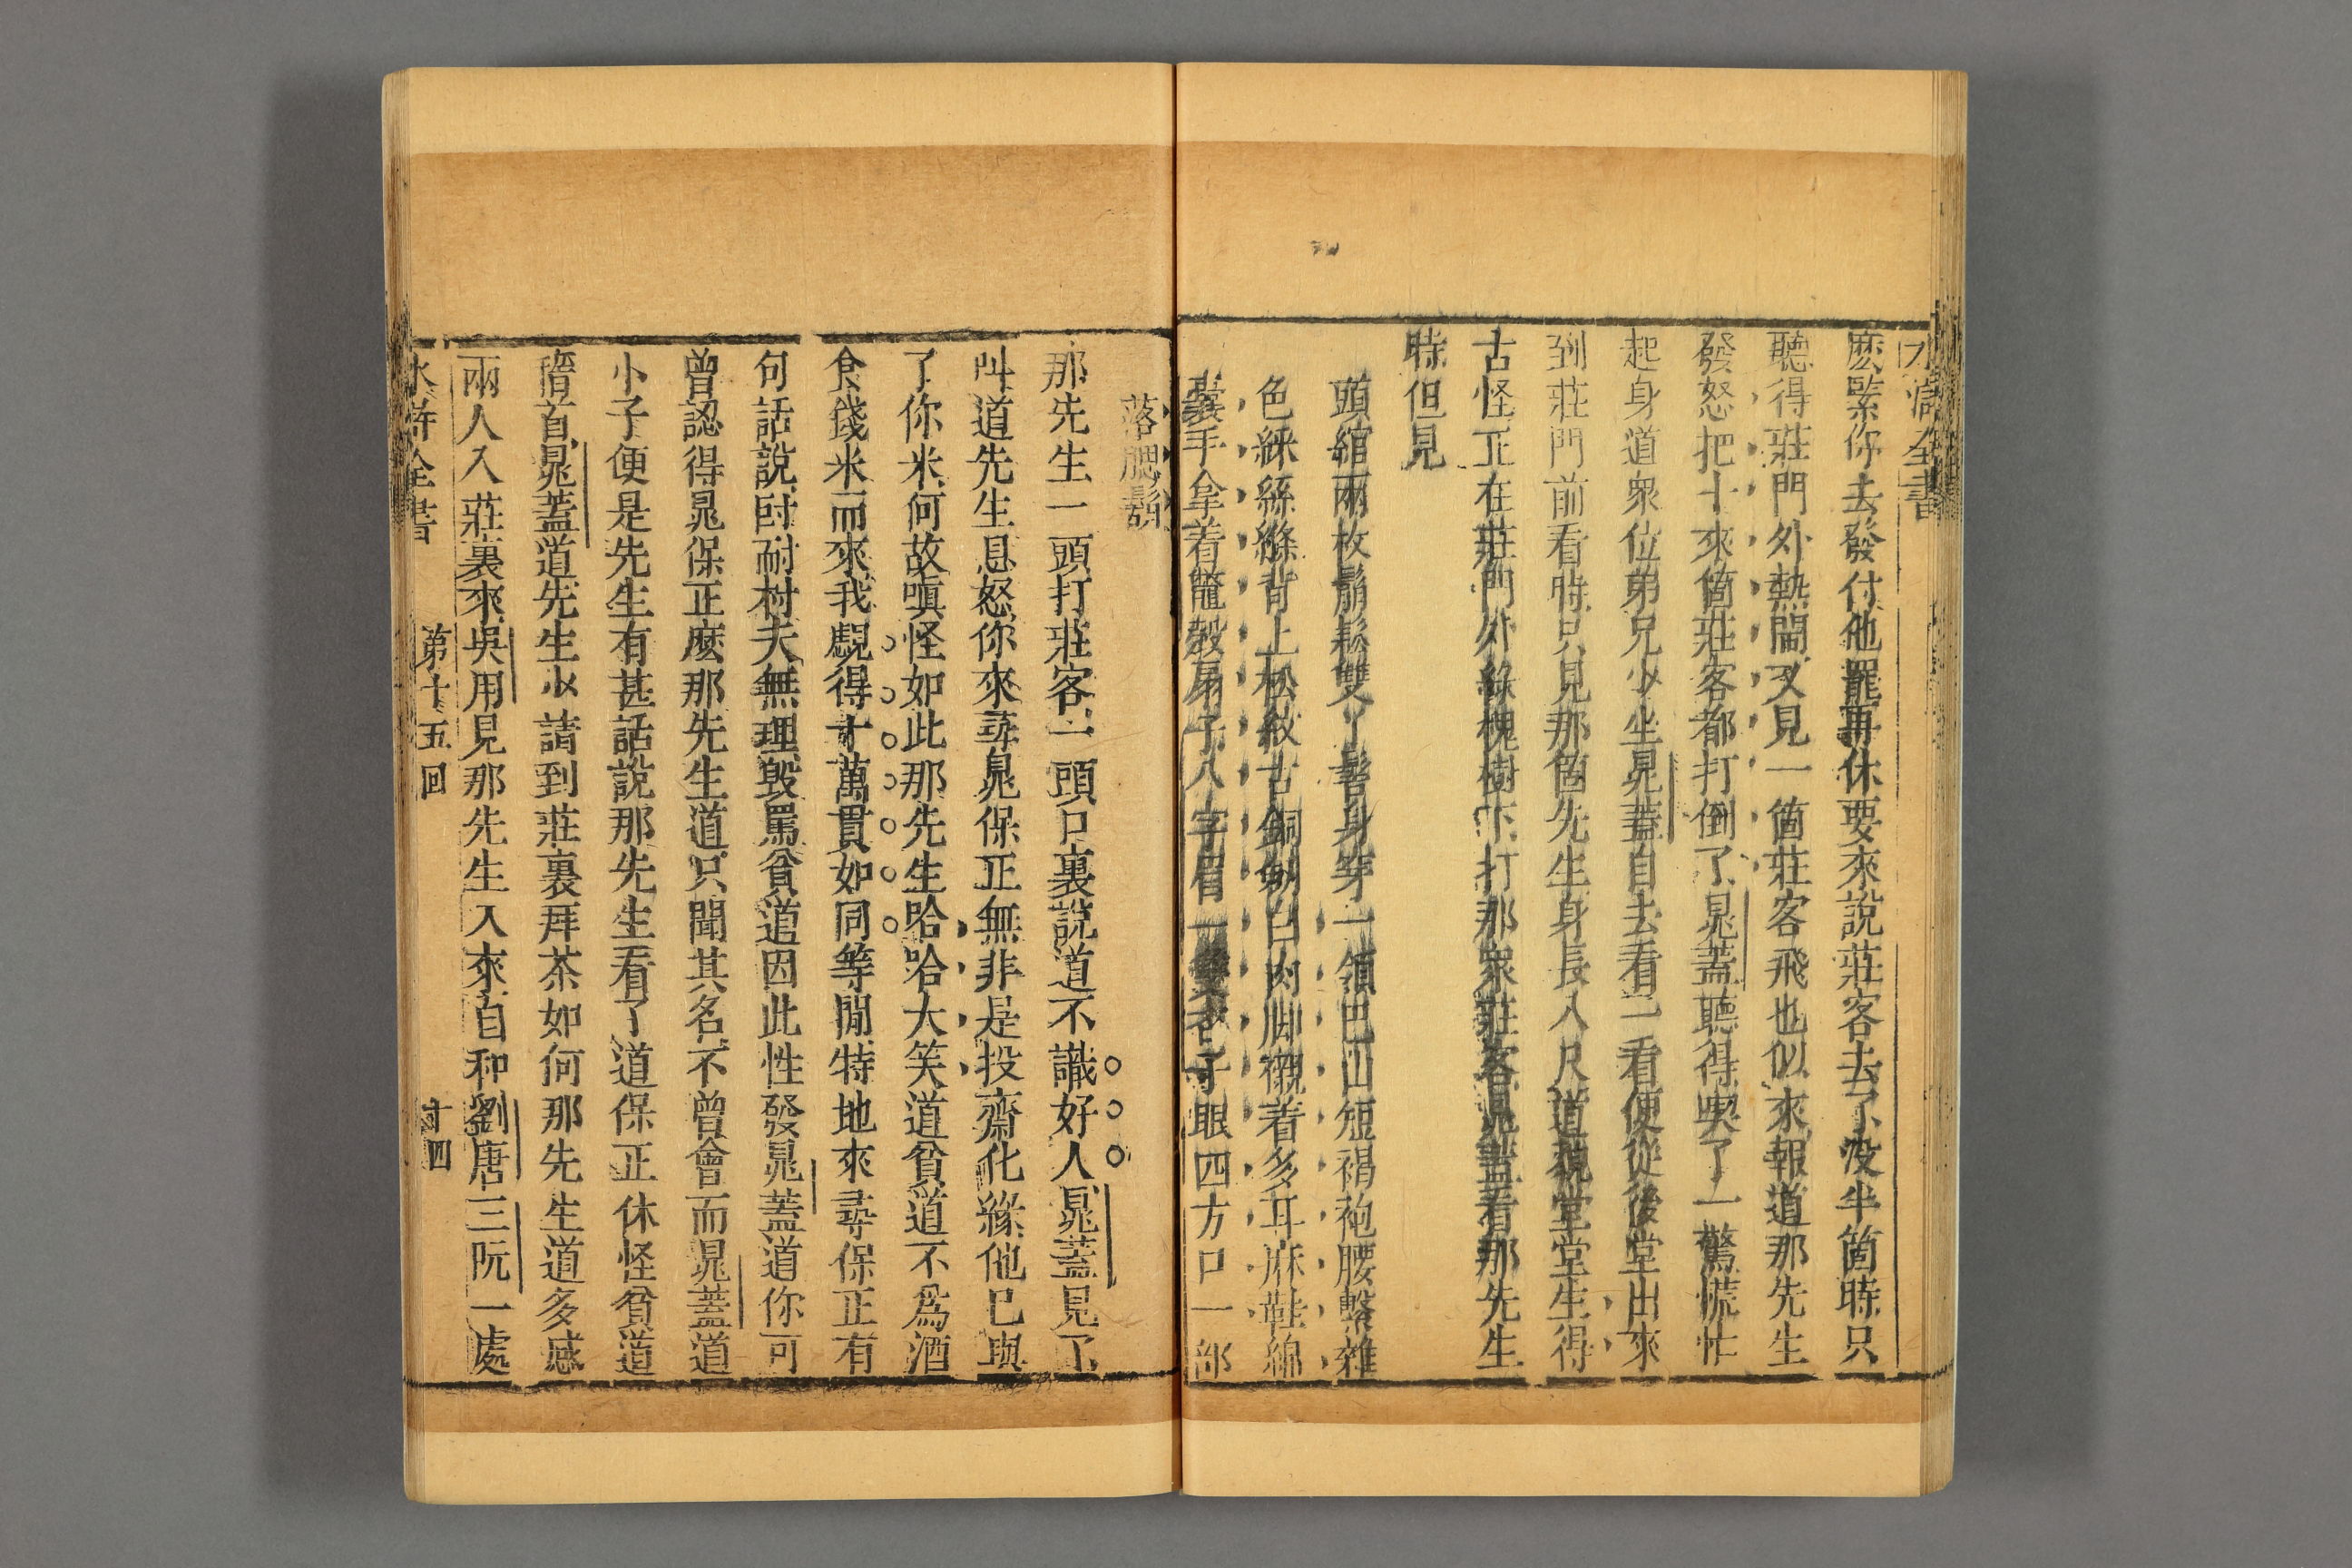 水滸全書
麽緊你去發付他罷再休要來說莊客去了沒半箇時只
聽得莊門外熱鬧又見一箇莊客飛也似來報道那先生
發怒把十來箇莊客都打倒了晁蓋聽得喫了一驚慌忙
起身道衆位弟兄少坐晁蓋自去看一看便從後堂出來
到莊門前看時只見那箇先生身長八尺道貌堂堂生得
古怪正在莊門外綠槐樹下打那衆莊客晁蓋看那先生
時但見
頭綰兩枚鬅鬆雙丫髻身穿一領巴山短褐袍腰繫雜
色綵絲縧背上松紋古銅劒白肉脚襯着多耳麻鞋綿
囊手拿着鼈殼扇子八字眉一雙杏子眼四方口一部
落腮鬍
那先生一頭打莊客一頭口裏說道不識好人晁蓋見了
叫道先生息怒你來尋晁保正無非是投齋化緣他已與
了你米何故嗔怪如此那先生哈哈大笑道貧道不爲酒
食錢米而來我覷得十萬貫如同等閒特地來尋保正有
句話說叵耐村夫無理毀罵貧道因此性發晁蓋道你可
曾認得晁保正麽那先生道只聞其名不曾會面晁蓋道
小子便是先生有甚話說那先生看了道保正休怪貧道
稽首晁蓋道先生少請到莊裏拜茶如何那先生道多感
兩人入莊裏來吳用見那先生入來自和劉唐三阮一處
水滸全書 第十五回 十四